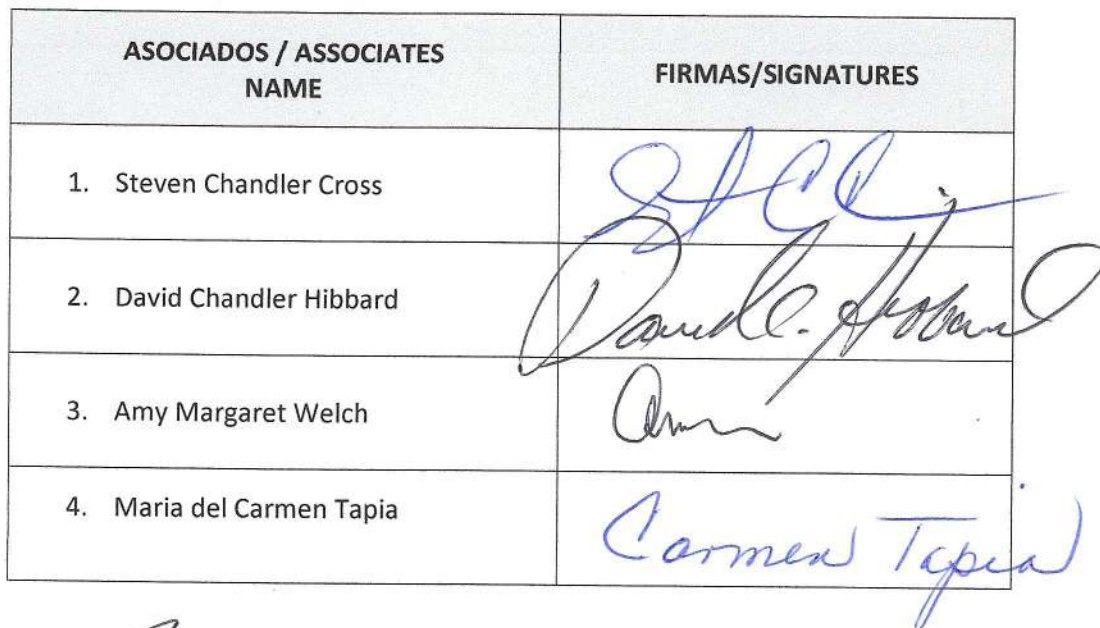 ASOCIADOS / ASSOCIATES
NAME
FIRMAS/SIGNATURES
1. Steven Chandler Cross
2. David Chandler Hibbard
David C. Hibbard
3. Amy Margaret Welch
4. Maria del Carmen Tapia
Carmen Tapia